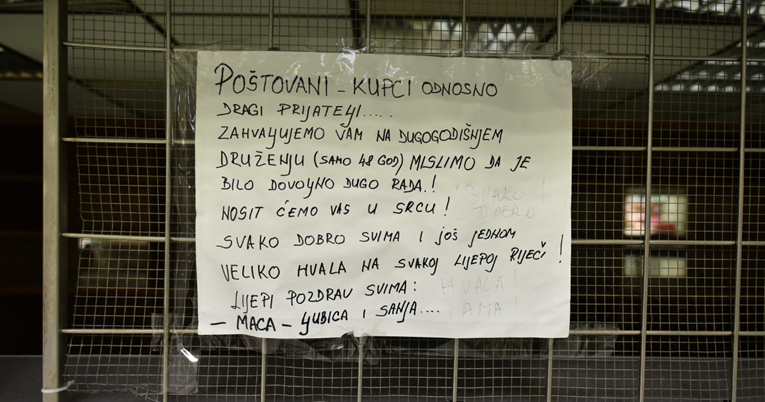 POŠTOVANI - KUPCI ODNOSNO
DRAGI PRIJATELJI.....
ZAHVALJUJEMO VAM NA DUGOGODIŠNJEM
DRUŽENJU (SAMO 48 GOD) MISLIMO DA JE
BILO DOVOLJNO DUGO RADA.!
NOSIT ĆEMO VAS U SRCU!
SVAKO DOBRO SVIMA I JOŠ JEDNOM
VELIKO HVALA NA SVAKOJ LIJEPOJ RIJEČI!
LIJEPI POZDRAV SVIMA:
- MACA - LJUBICA I SANJA....
SVAKO!
DOBRO
HVALA!